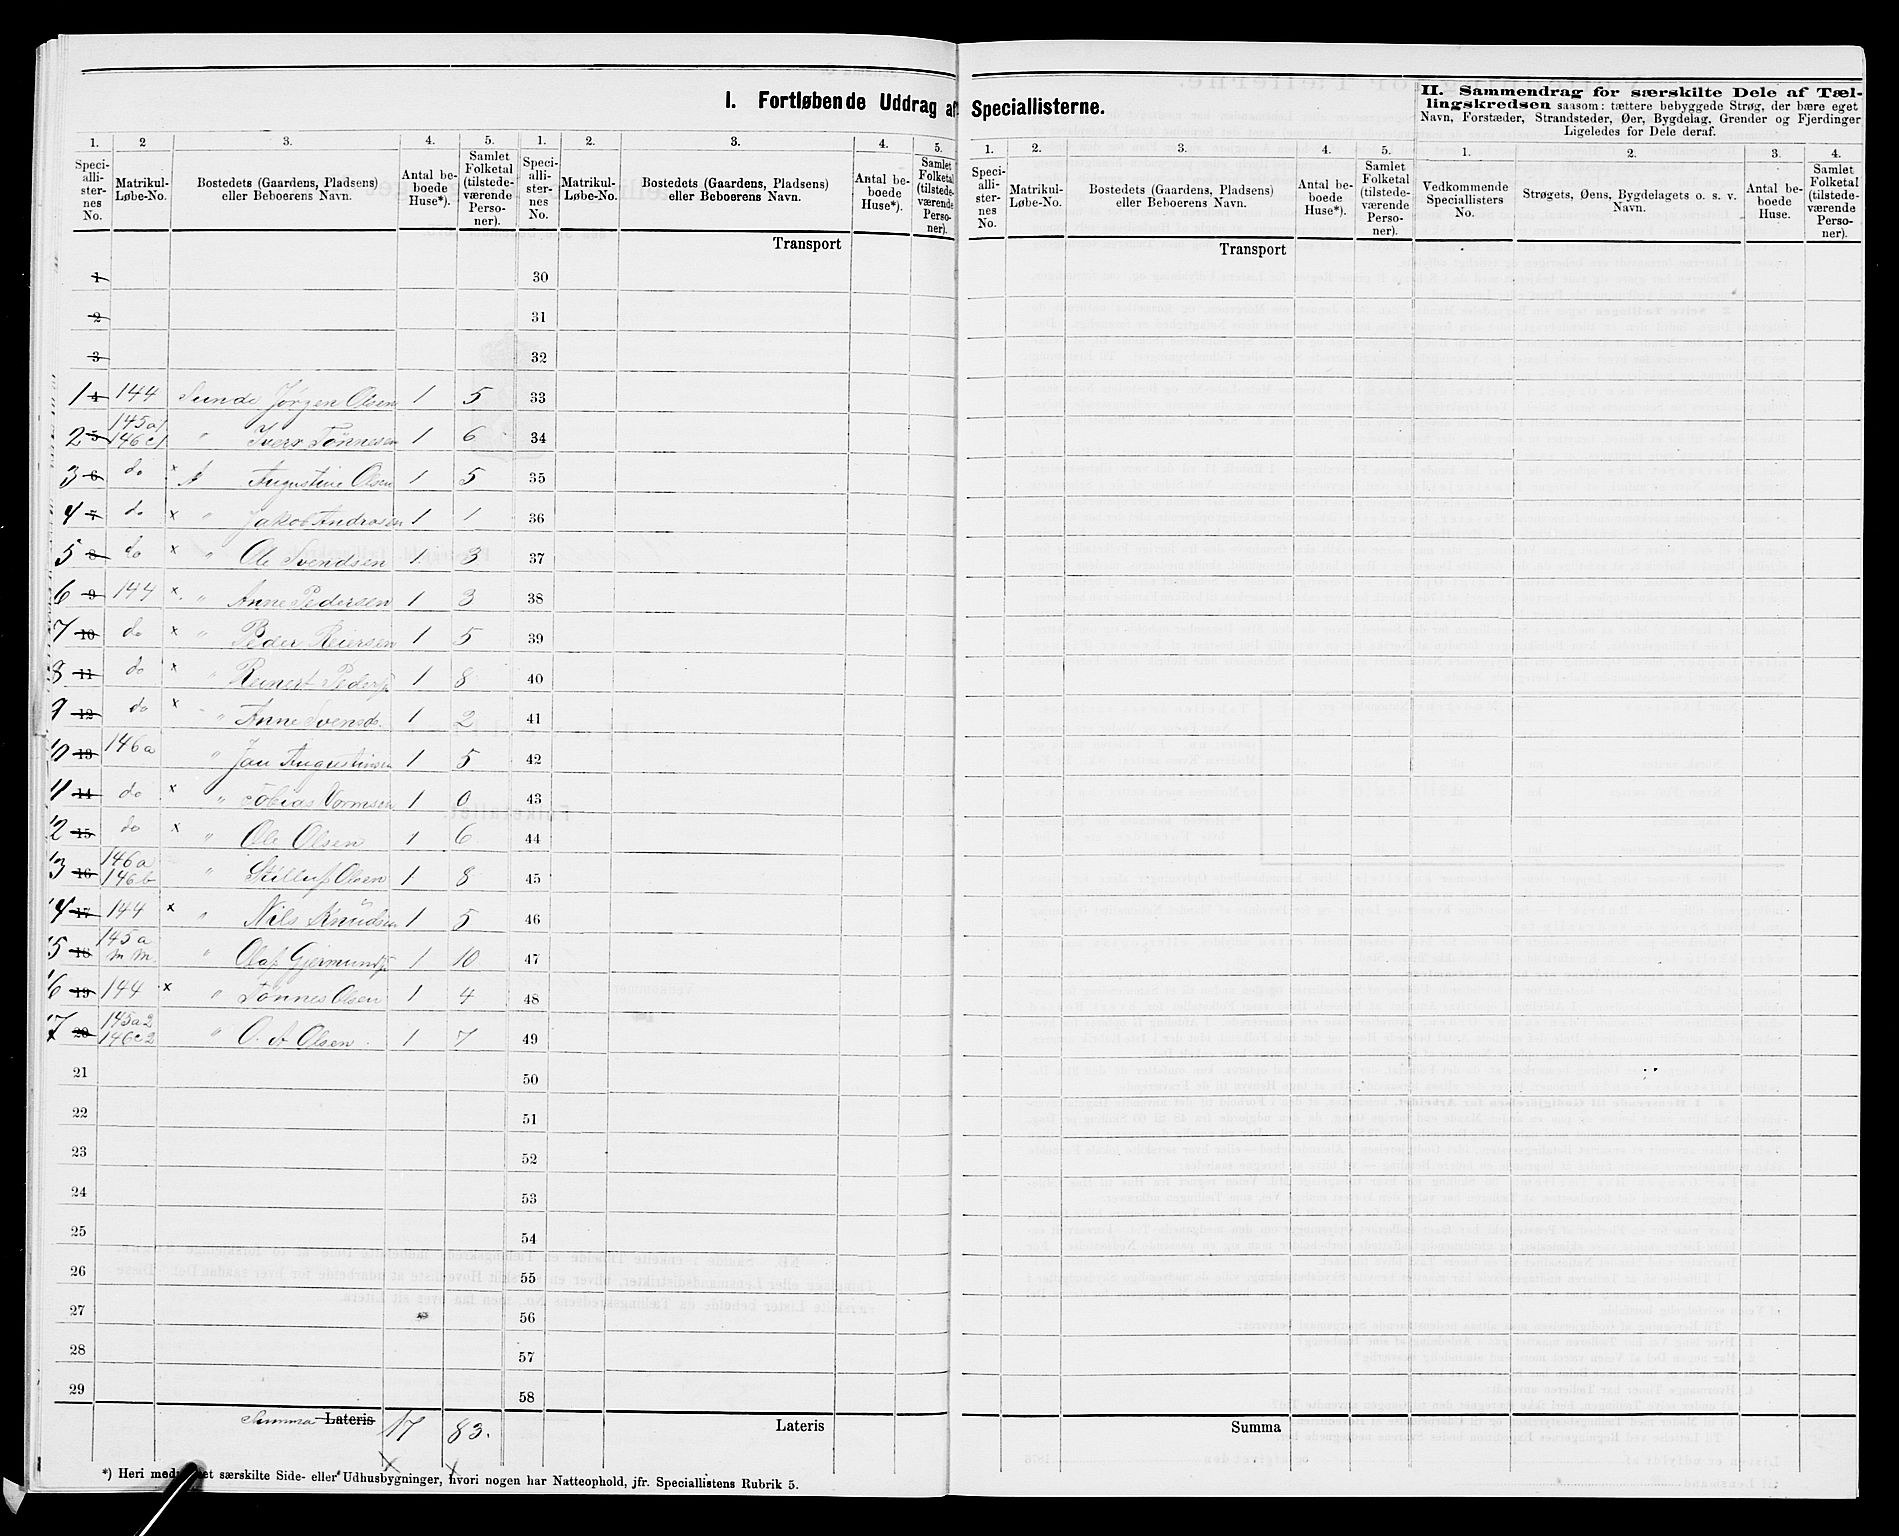 I. Fortløbende Uddrag af Speciallisterne.
II. Sammendrag for særskilte Dele af Tæl-
lingskredsen saasom: tættere bebyggede Strøg, der bære eget
Navn, Forstæder, Strandsteder, Øer, Bygdelag, Grender og Fjerdinger
Ligeledes for Dele deraf.
1. 2 3. 4. 5. 1. 2. 3. 4. 5. 1. 2. 3. 4. 5. 1. 2. 3. 4.
Speci-alli-ster-nes No. Matrikul-Løbe-No. Bostedets (Gaardens, Pladsens) eller Beboerens Navn. Antal be-boede Huse*). Samlet Folketal (tilstede-værende Perso-ner).
Speci-alli-ster-nes No. Matrikul-Løbe-No. Bostedets (Gaardens, Pladsens) eller Beboerens Navn. Antal be-boede Huse*). Samlet Folketal (tilstede-værende Perso-ner).
Speci-alli-ster-nes No. Matrikul-Løbe-No. Bostedets (Gaardens, Pladsens) eller Beboerens Navn. Antal be-boede Huse*). Samlet Folketal (tilstede-værende Perso-ner).
Vedkommende Speciallisters No. Strøgets, Øens, Bygdelagets o. s. v. Navn. Antal be-boede Huse. Samlet Folketal (tilstede-værende Perso-ner).
Transport Transport
1 30
2 31
3 32
1 4 144 Sunde Jørgen Olsen 1 5 33
2 5 145a1 146c1 " Iver Tønnesen 1 6 34
3 6 do x Augustine Olsen 1 5 35
4 7 do x " Jakob Andrasen 1 1 36
5 8 do x " Ole Svendsen 1 3 37
6 9 144 x " Anne Pedersen 1 3 38
7 10 do x " Peder Reiersen 1 5 39
8 11 do x " Reinert Peders 1 8 40
9 12 do x " Anne Svensd. 1 2 41
10 13 146a " Jan Augustinsen 1 5 42
11 14 do x " Tobias Normsen 1 0 43
12 15 do x " Ole Olsen 1 6 44
13 16 146a 146b " Olsen 1 8 45
14 17 144 x " Nils Knudsen 1 5 46
15 18 145a m m " Olaf Gjermunds 1 10 47
16 19 144 x " Tønnes Olsen 1 4 48
17 20 145a2 146c2 " O. A Olsen 1 7 49
21 50
22 51
23 52
24 53
25 54
26 55
27 56
28 57
29 58
Summa Lateris 17 83. Lateris Summa
*) Heri særskilte Side- eller Udhusbygninger, hvori nogen har Natteophold, jfr. Speciallistens Rubrik 5.